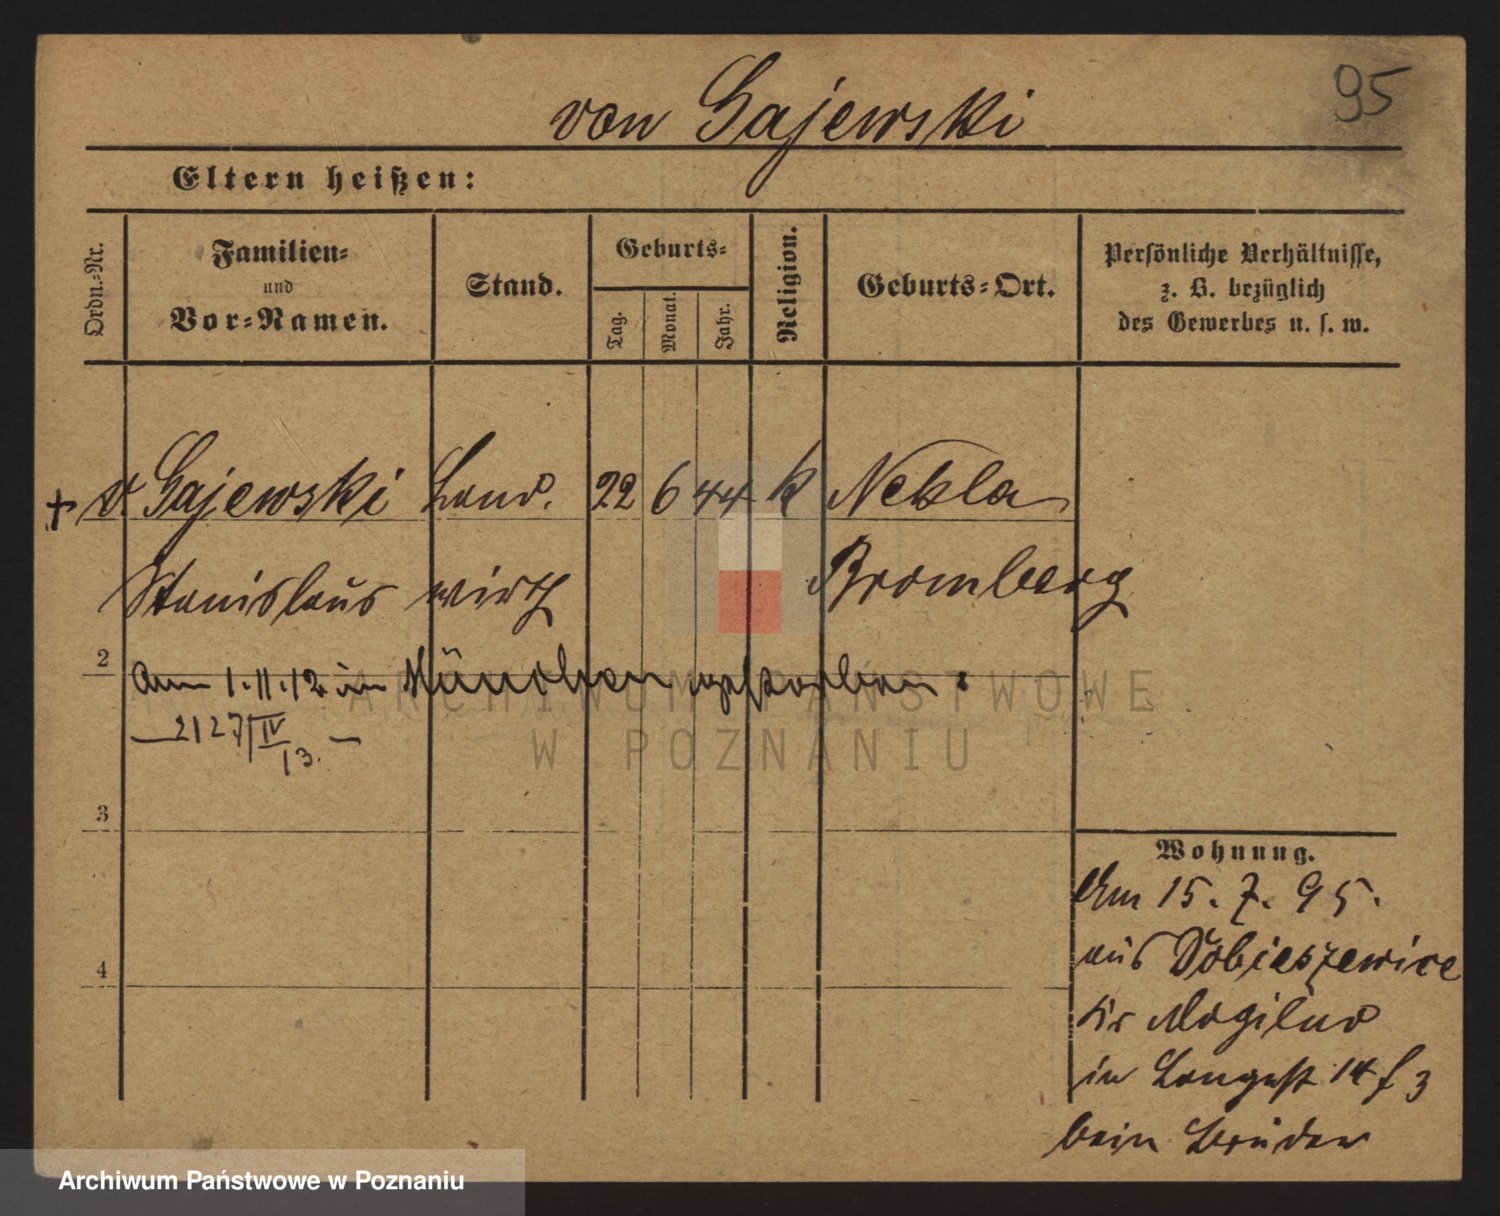 von Gajewski
95
Eltern heißen:
Ordn.-Nr.
Familien-
und
Vor-Namen.
Stand.
Geburts-
Tag.
Monat.
Jahr.
Religion.
Geburts-Ort.
Persönliche Verhältnisse,
z. B. bezüglich
des Gewerbes u. s. w.
† v. Gajewski Land. 22 6 44 k Nekla
Stanislaus wirth Bromberg
2
am 1.11.12 in München verstorben.
— 2127/IV 13. —
3
Wohnung.
Am 15. 7. 95.
aus Dobieszewice
4
Kr Mogilno
in Langest 14 f 3
beim Bruder
ARCHIWUM PAŃSTWOWE
W POZNANIU
Archiwum Państwowe w Poznaniu